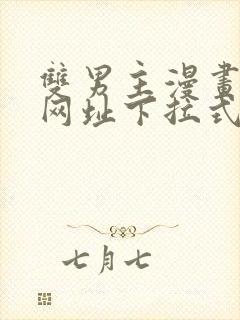 雙男主漫畫
网址下拉式
七月七